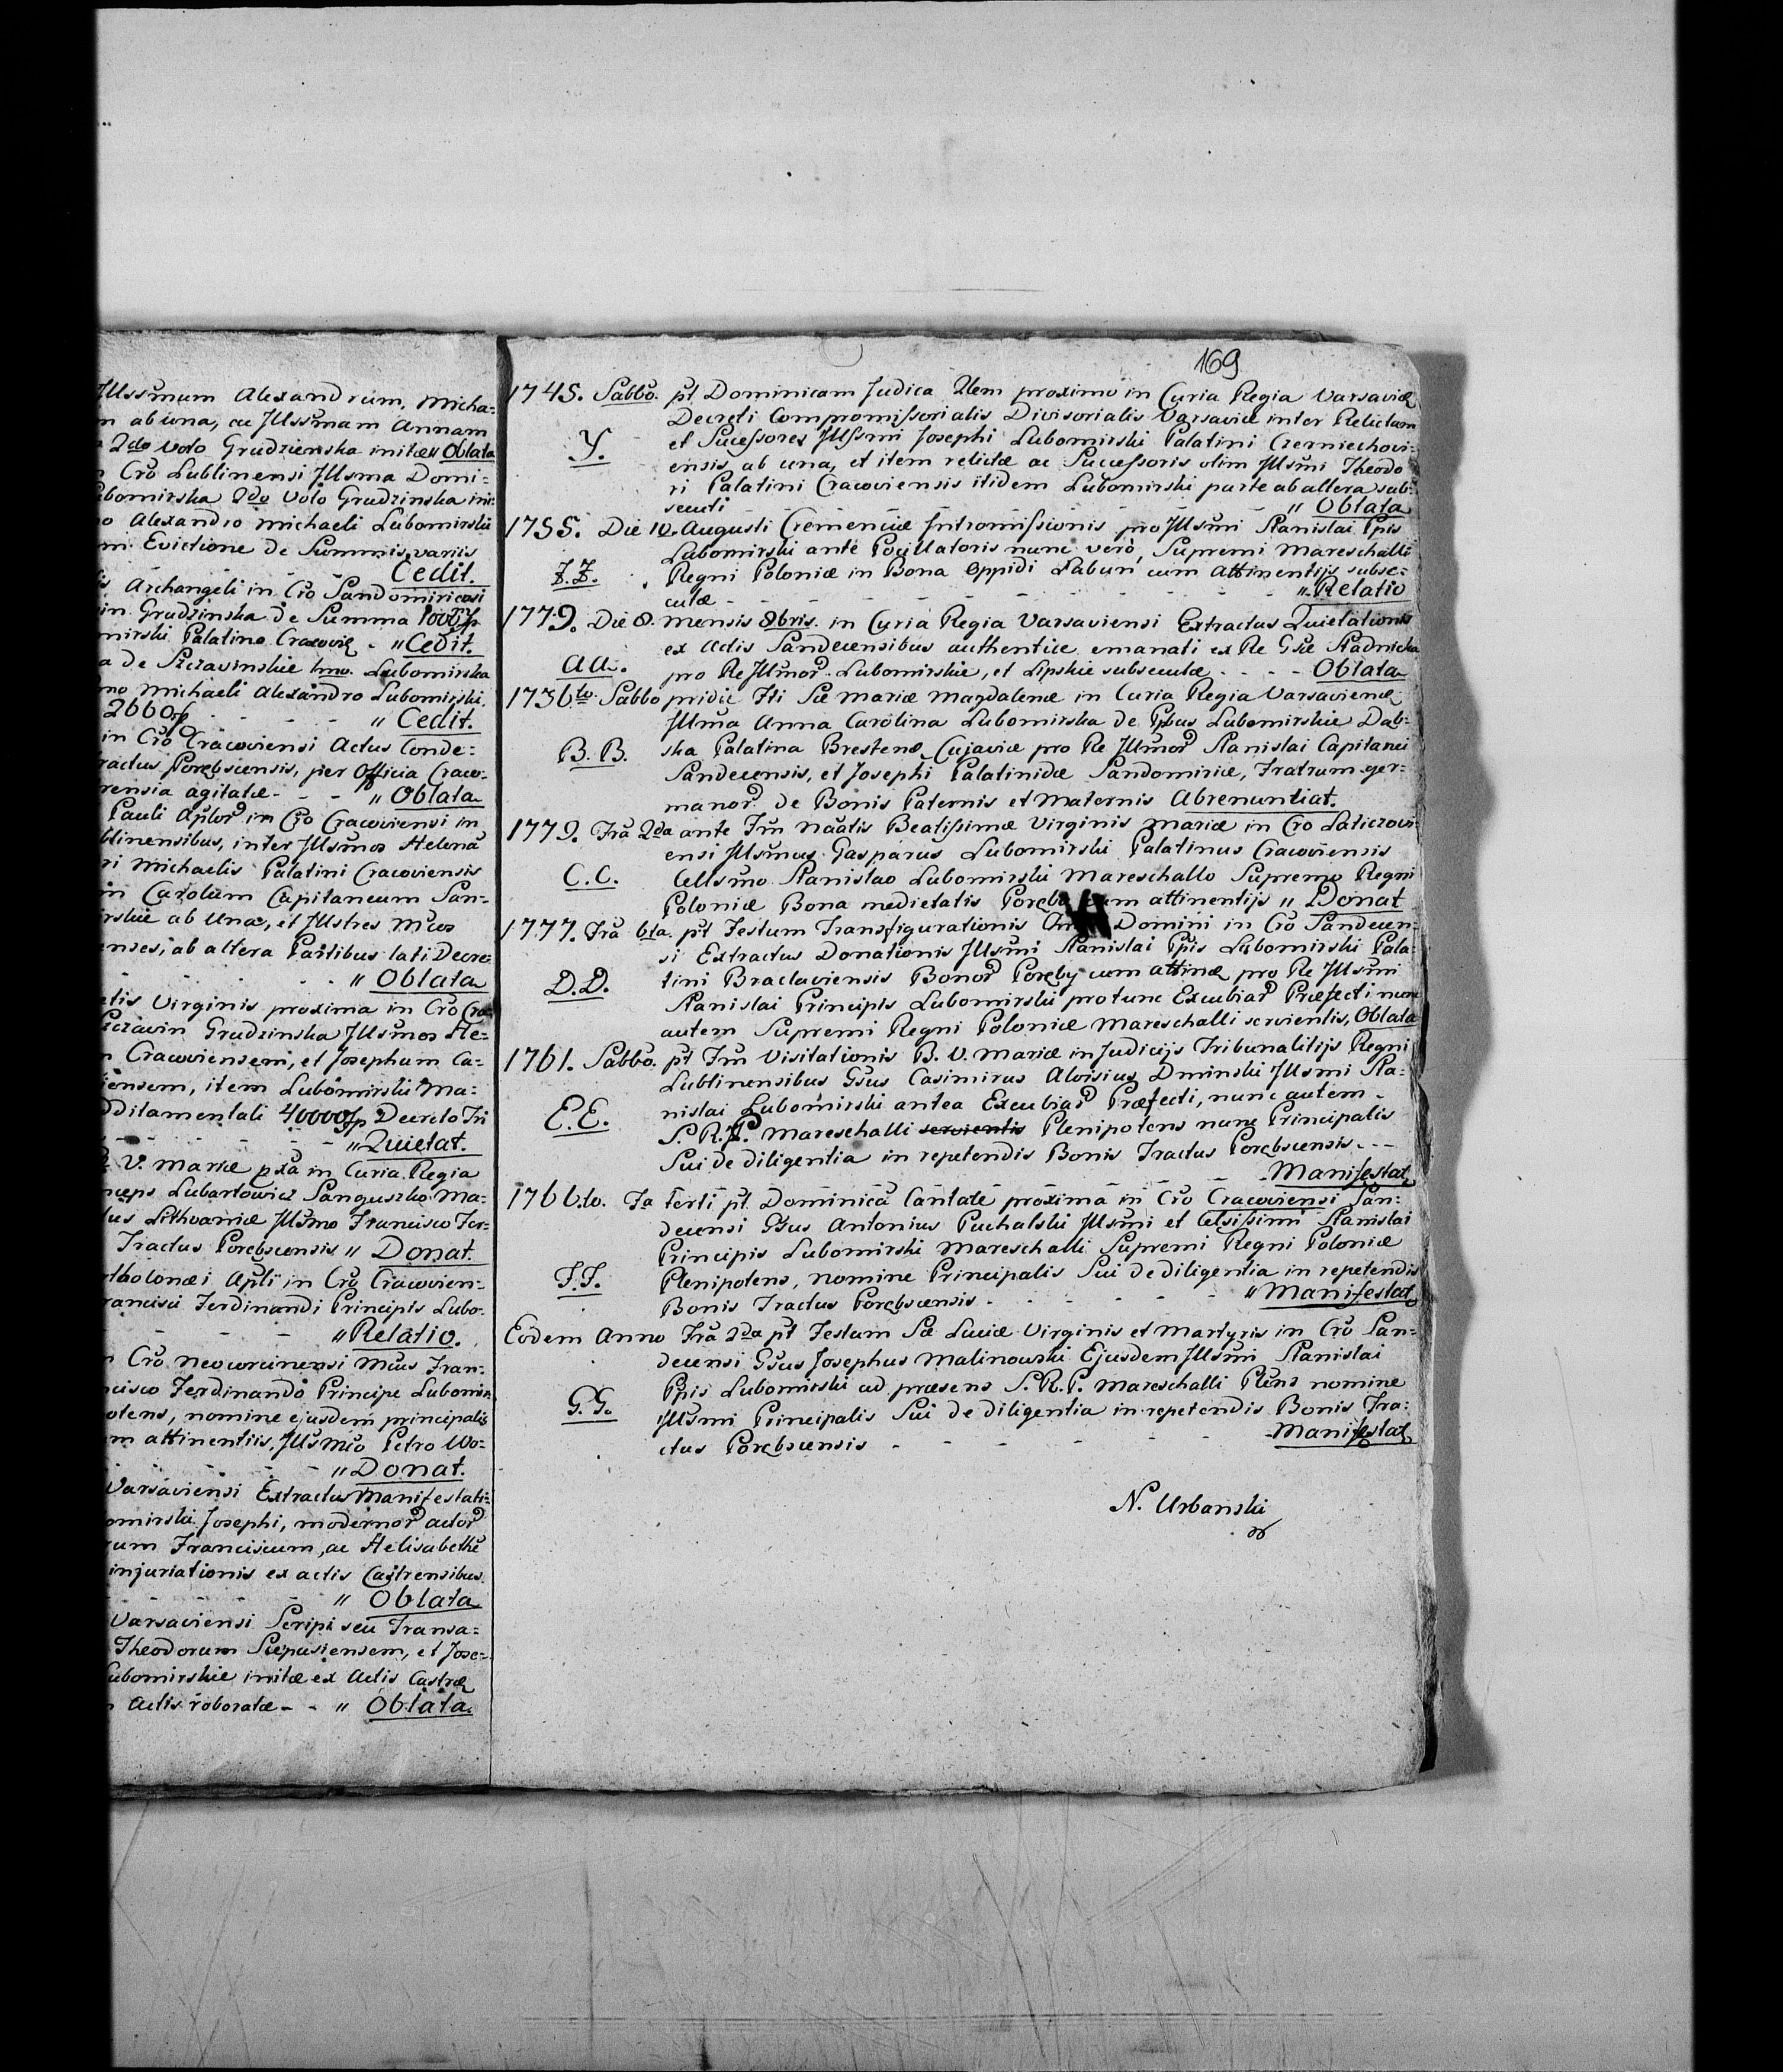 Illssmum Alexandrum, Micha=
ab una, ac Illssmam Annam
2do Voto Grudzienska initæ " Oblata
Cro Lublinensi Illsma Domi=
Lubomirska 2do Voto Grudzinska
Alexandro Michaeli Lubomirski
Evictione de Summis variis
Cedit.
Archangeli in Cro Sandomiriensi
Grudzinska de Summa
Palatino Cracoviæ - " Cedit.
a de Szczawinskie 1mo. Lubomirska
Michaeli Alexandro Lubomirski
2660 - - - " Cedit.
in Cro Cracoviensi Actus Conde=
ractus Porębscensis, per Officia Craco=
rensia agitatæ - - - " Oblata
Pauli Aplor in Cro Cracoviensi in
blinensibus, inter Illsmos Helenã
ri Michaelis Palatini Cracoviensis
in Carolum Capitaneum San=
rskie ab Una, et Illstres Mcos
enses, ab altera Partibus lati Decre=
" Oblata
Virginis proxima in Cro
Grudzinska Illsmos He=
Cracoviensem, et Josephum Ca=
iensem, item Lubomirski Ma=
dditamentali 40000 Decreto Tri
- - - - " Quietat.
V. Mariæ pxa in Curia Regia
nceps Lubartowicz Sanguszko Ma=
us Lithvaniæ Illsmo Francisco Fer=
Tractus Porębscensis " Donat.
tholomæi Apli in Cro Cracovien=
rancisci Ferdinandi Principis Lubo=
- - - - " Relatio.
Cro Neocorcinensi Mcus Fran=
cisco Ferdinando Principe Lubomir
otens, nomine ejusdem principalis
m attinentiis, Illsmo Petro Wo=
" Donat.
Varsaviensi Extractus Manifestati=
omirski Josephi, modernor actor
rum Franciscum, ac Helisabethã
injuriationis ex actis Castrensibus
" Oblata
Varsaviensi Scripti seu Transa=
Theodorum Scepusiensem, et Jose=
Lubomirskie initæ ex Actis Castræ
Actis roboratæ - - " Oblata.
169
1745. Sabbo. pt. Dominicam Judica proximo in Curia Regia Varsaviæ
Decreti Compromissorialis Divisorialis Varsaviæ inter Relictam
Y. et Sucessores Illssmi Josephi Lubomirski Palatini Czerniechovi=
ensis ab una, et item relictæ ac Successoris olim Illsmi Theodo
ri Palatini Cracoviensis itidem Lubomirski parte ab altera sub=
secuti - - - - " Oblata
1755. Die 10. Augusti Cremenciæ Intromissionis pro Illsmi Stanislai Ppis
Lubomirski ante Pocillatoris nunc verò, Supremi Mareschalli
Z.Z. Regni Poloniæ in Bona Oppidi Łabuń cum Attinentijs subse=
cutæ - - - - " Relatio
1779. Die 8. Mensis 8bris. in Curia Regia Varsaviensi Extractus Quietationis
ex Actis Sandecensibus authentice emanati ex Re Gsæ Stadnicka
AA. pro Re Illmor Lubomirskie, et Lipskie subsecutæ - - - Oblata
1736to. Sabbo pridie Fti Sæ Mariæ Magdalenæ in Curia Regia Varsavienæ
Illma Anna Carolina Lubomirska de Ppbus Lubomirskie Dąb=
B.B. ska Palatina Brestenæ Cujaviæ pro Re Illmor Stanislai Capitanei
Sandecensis, et Josephi Palatinidæ Sandomiriæ, Fratrum ger=
manor de Bonis Paternis et Maternis Abrenuntiat.
1779. Fra 2da ante Fm Naatis Beatissimæ Virginis Mariæ in Cro Laticzovi
ensi Illsmus Gasparus Lubomirski Palatinus Cracoviensis
C.C. Cellsmo Stanislao Lubomirski Mareschallo Supremo Regni
Poloniæ Bona medietatis Poręba cum attinentijs " Donat
1777. Fra 6ta. pt Festum Transfigurationis Domini in Cro Sandecen=
si Extractus Donationis Illsmi Stanislai Ppis Lubomirski Pala=
D.D. tini Braclaviensis Bonor Poręby cum attinæ pro Re Illsmi
Stanislai Principis Lubomirski protunc Excubiar Præfecti nunc
autem Supremi Regni Poloniæ Mareschalli servientis, Oblata
1761. Sabbo. pt Fm Visitationis B. V. Mariæ in Judicijs Tribunalitijs Regni
Lublinensibus Gsus Casimirus Aloisius Dminski Illsmi Sta=
E.E. nislai Lubomirski antea Excubiar Præfecti, nunc autem
S. R. P. Mareschalli servientis Plenipotens nunc Principalis
Sui de diligentia in repetendis Bonis Tractus Porębscensis - - -
Manifestat
1766.to. Fa tertia pt Dominicã Cantate proxima in Cro Cracoviensi San=
decensi Gsus Antonius Puchalski Illsmi et Celsissimi Stanislai
Principis Lubomirski Mareschalli Supremi Regni Poloniæ
F.F. Plenipotens, nomine Principalis Sui de diligentia in repetendis
Bonis Tractus Porębscensis - - - - " Manifestat
Eodem Anno Fra 2da pt Festum Sæ Luciæ Virginis et Martyris in Cro San=
decensi Gsus Josephus Malinowski Ejusdem Illsmi Stanislai
G.G. Ppis Lubomirski ad præsens S. R. P. Mareschalli Plens nomine
Illsmi Principalis Sui de diligentia in repetendis Bonis Tra=
ctus Porębscensis - - - - Manifestat
N. Urbanski